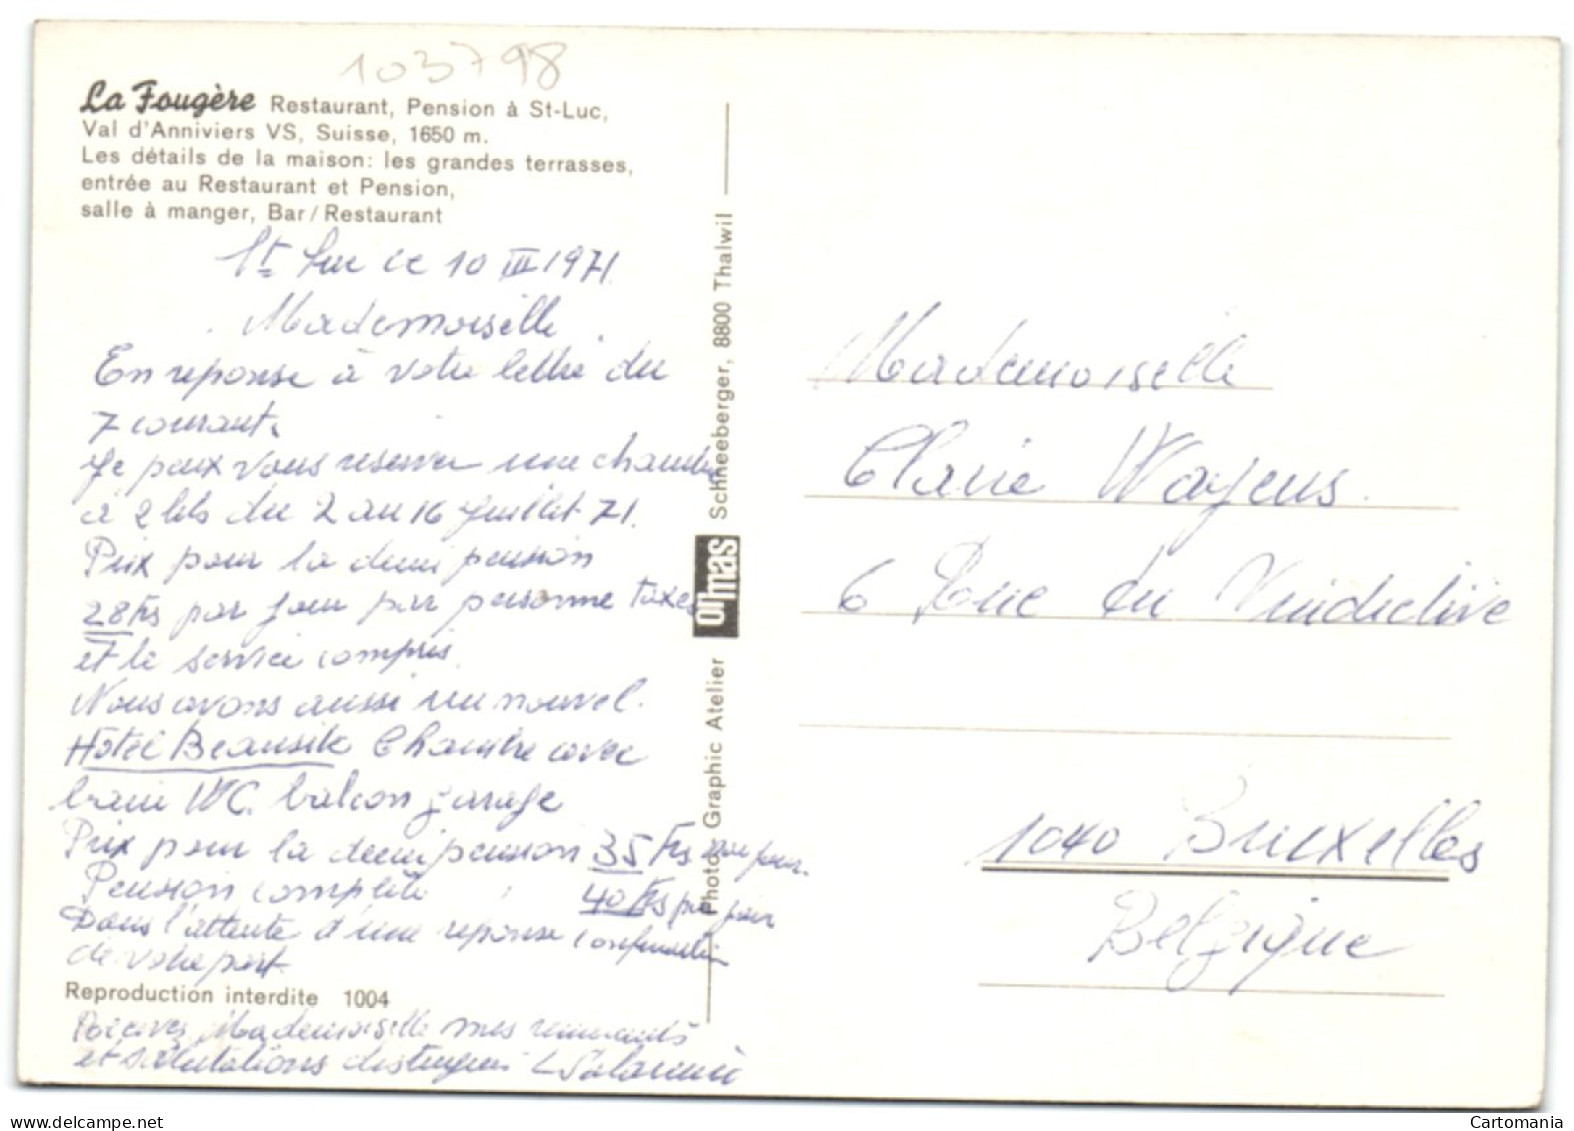 103798
La Fougère Restaurant, Pension à St-Luc,
Val d'Anniviers VS, Suisse, 1650 m.
Les détails de la maison: les grandes terrasses,
entrée au Restaurant et Pension,
salle à manger, Bar/Restaurant
St Luc le 10 III 1971.
Mademoiselle
En reponse à votre lettre du
7 courant.
Je peux vous reserver une chambre
à 2 lits du 2 au 16 juillet 71.
Prix pour la demi pension
28 frs par jour par personne taxes
et le service compris.
Nous avons aussi un nouvel.
Hotel Beausite Chambre avec
bain WC. balcon garage
Prix pour la demi pension 35 frs par jour.
Pension complète 40 frs par jour
Dans l'attente d'une reponse
de votre part.
Reproduction interdite 1004
Recevez Mademoiselle mes
et salutations L
Photo Graphic Atelier ormas Schneeberger, 8800 Thalwil
Mademoiselle
Claire Wayens.
6 Rue du Vindictive
1040 Bruxelles
Belgique
www.delcampe.net
Cartomania